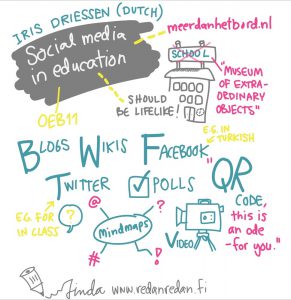 IRIS DRIESSEN (DUTCH)
meerdanhetbord.nl
Social media
in education
SCHOOL
"MUSEUM
OF EXTRA-
ORDINARY
OBJECTS"
SHOULD
BE LIFELIKE!
OEB11
E.G. IN
TURKISH
BLOGS WIKIS FACEBOOK
TWITTER POLLS "QR
CODE,
this is
an ode
-for you."
E.G. FOR
IN CLASS
?
@
?
Mindmaps
#
!
VIDEO
Linda www.redanredan.fi